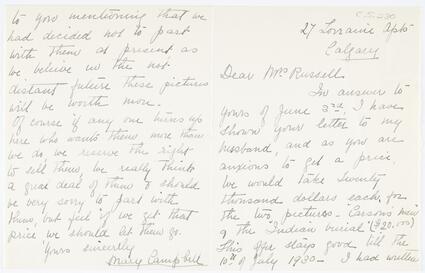 27 Lorraine Apts
Calgary
Dear Mrs Russell
In answer to
yours of June 3rd, I have
shown your letter to my
husband, and as you are
anxious to get a price,
we would take Twenty
thousand dollars each, for
the two pictures. "Carsons men"
& the "Indian burial" ($20,000)
This offer stays good till the
10th of July 1930 - I had written
to you mentioning that we
had decided not to part
with them at present as
we believe in the not
distant future these pictures
will be worth more.
Of course if any one turns up
here who wants them more than
we do, we reserve the right
to sell them, we really think
a great deal of them & should
be very sorry to part with
them, but feel if we get that
price we should let them go.
Yours sincerely
Mary Campbell